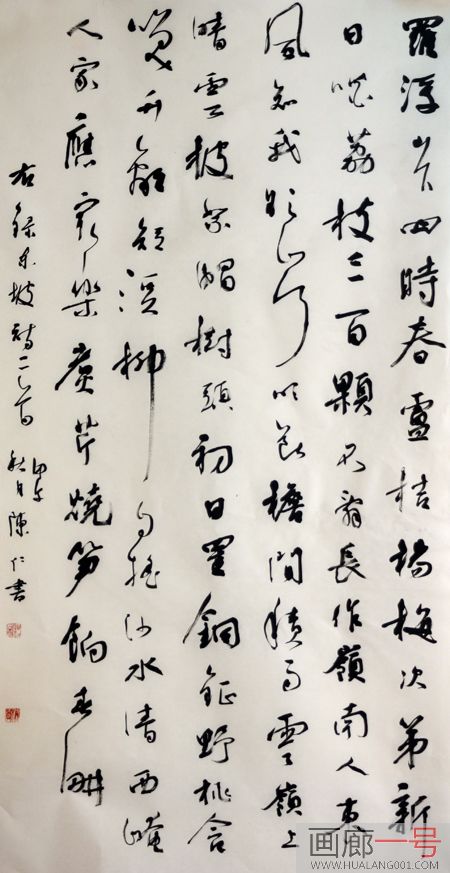 羅浮山下四時春盧桔楊梅次第新
日啖荔枝三百顆不辭長作嶺南人東
風知我欲山行吹斷檐間積雨嶺上
晴雲披絮帽樹頭初日罣銅鉦野桃含
笑竹籬短溪柳自搖沙水清西崦
人家應最樂煮芹燒笋餉春耕
右錄東坡詩二首
甲午
秋月陳仁書
画廊一号
WWW.HUALANG001.COM